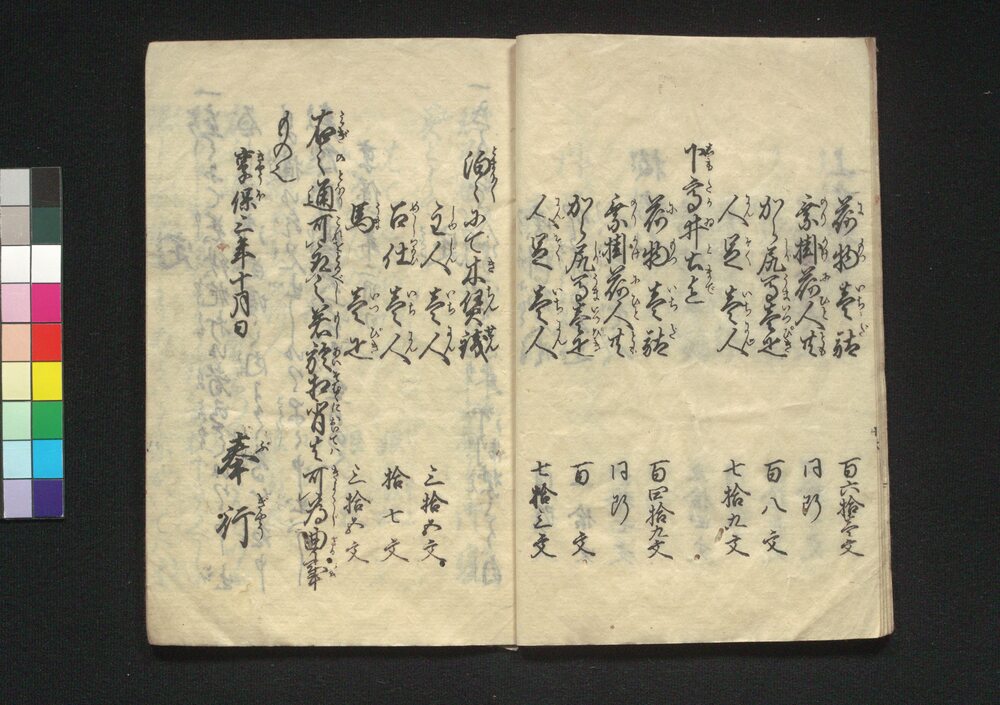 荷物壱駄 百六拾三文
乗掛荷人共 同断
から尻馬壱疋 百八文
人足壱人 七拾九文
下高井戸迄
荷物壱駄 百四拾九文
乗掛荷人共 同断
から尻馬壱疋 百文
人足壱人 七拾三文
泊々ニて木賃銭
主人壱人 三拾五文
召仕壱人 拾七文
馬壱疋 三拾五文
右之通可取之若於相背は可為曲事
もの也
享保三年十月日 奉行